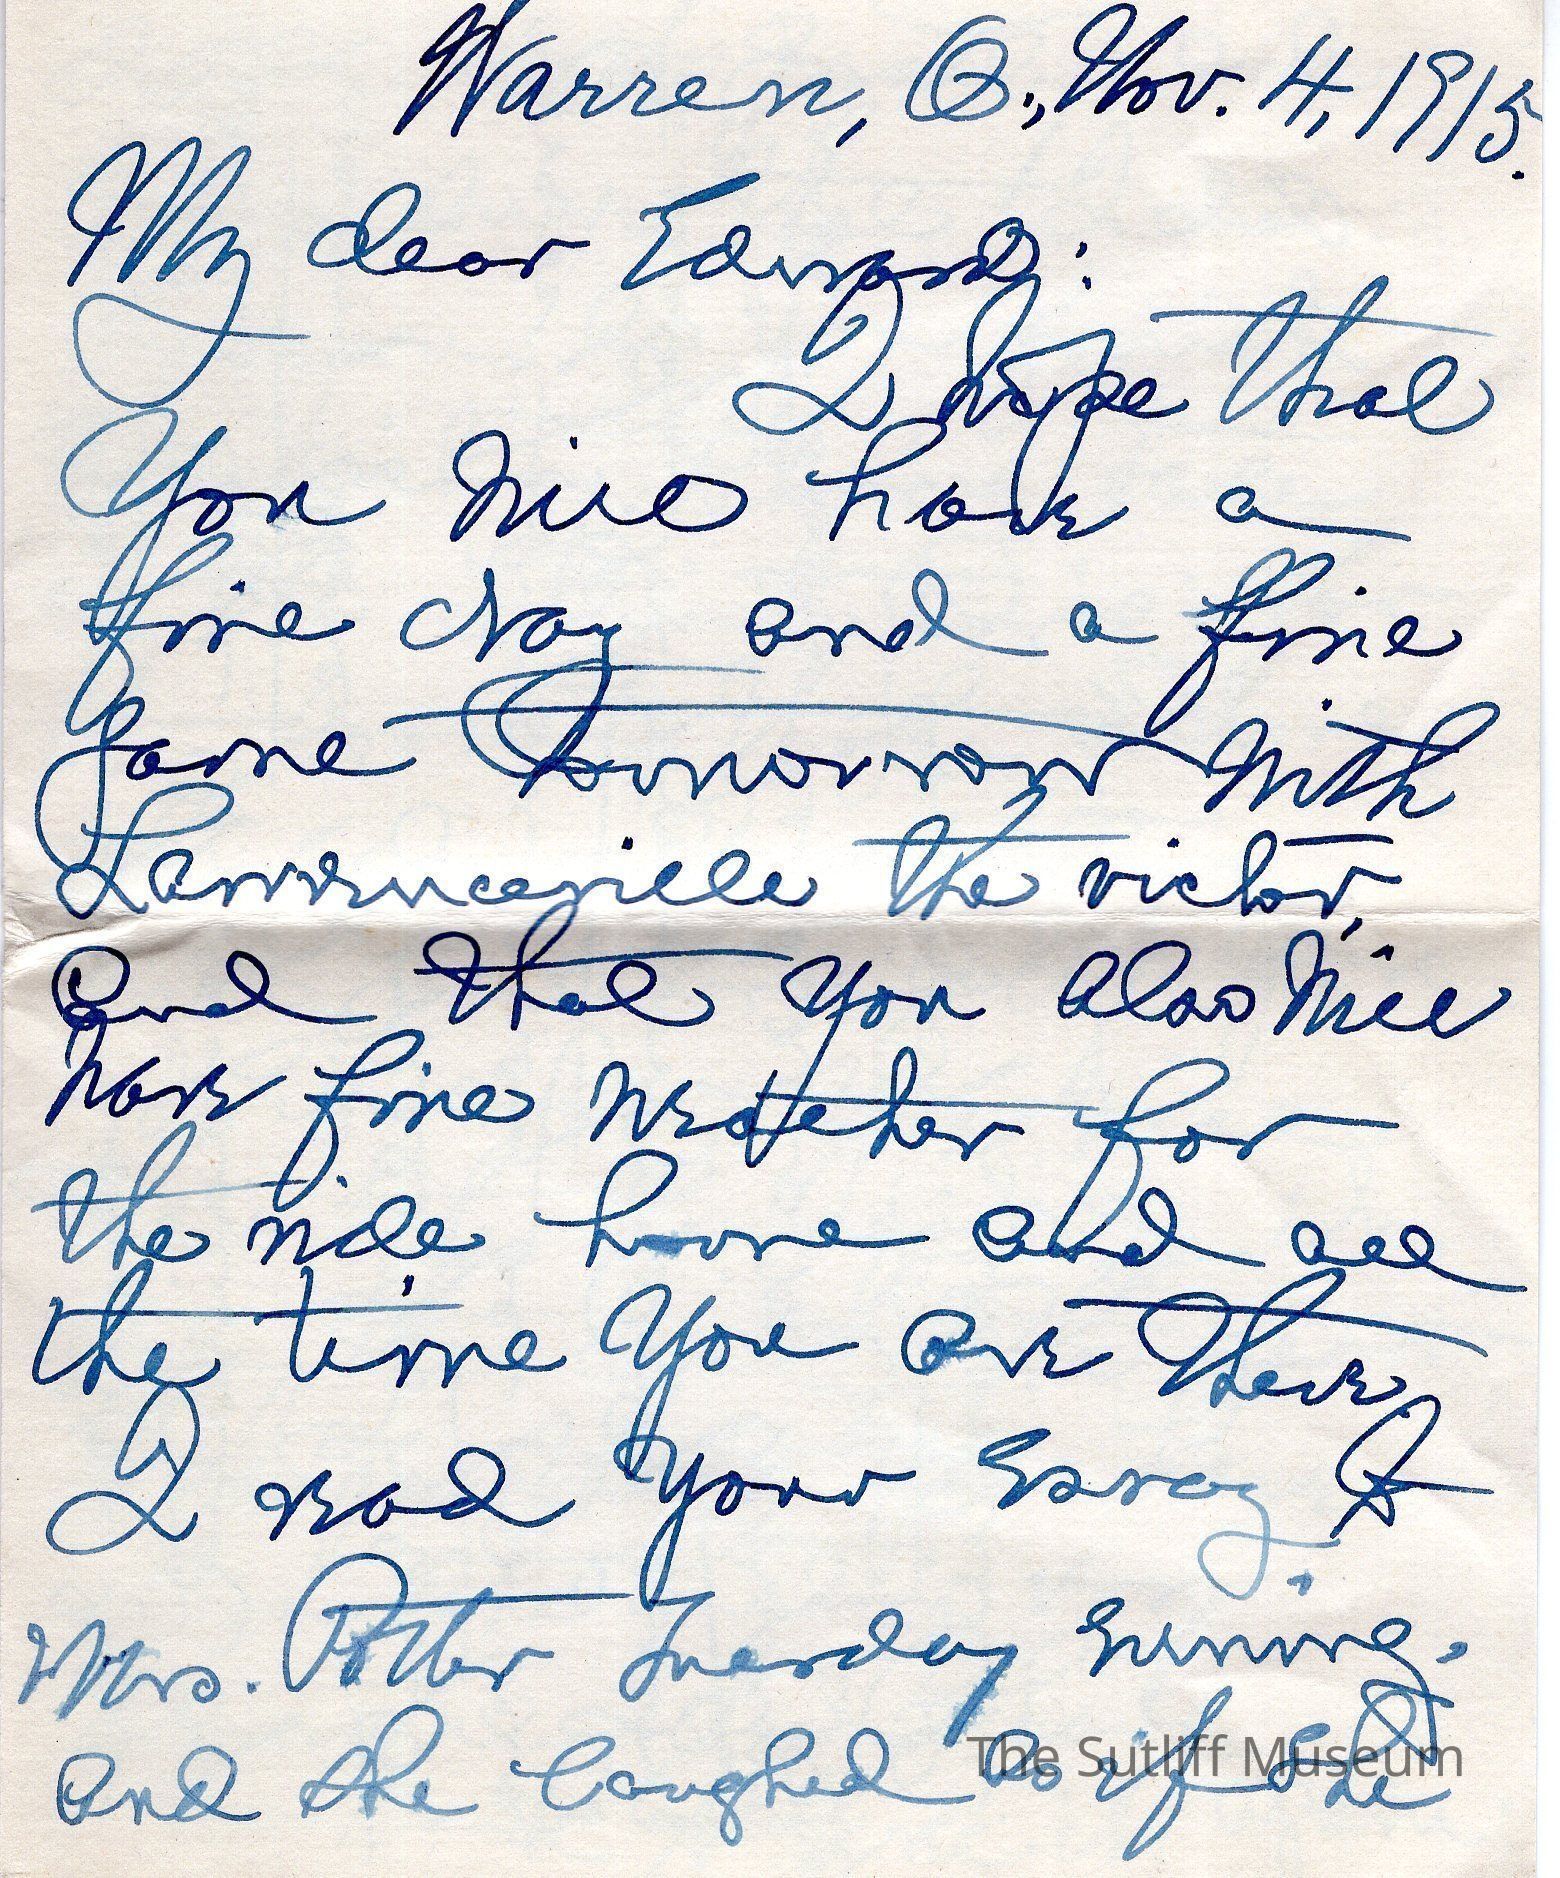 Warren, O., Nov. 4, 1915.
My dear Edward:
I hope that
you will have a
fine day and a fine
game tomorrow with
Lawrenceville the victor,
and that you also will
have fine weather for
the ride home and all
the time you are there.
I read your essay to
Mrs. Potter Tuesday evening,
and she laughed as if she
The Sutliff Museum